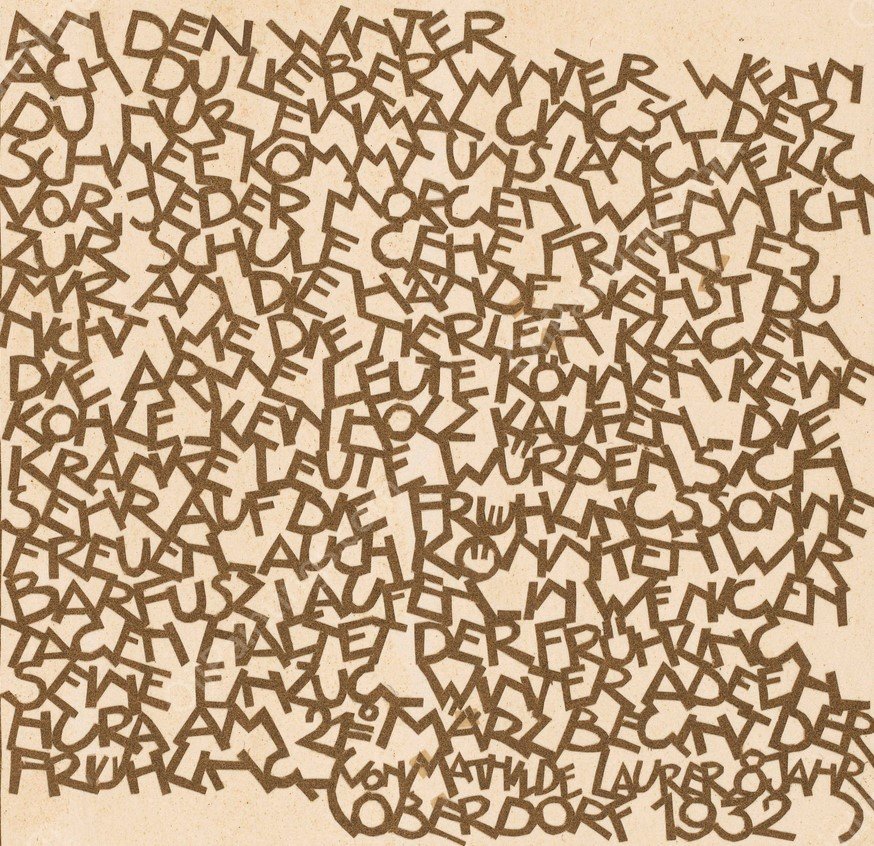 AN DEN WINTER
ACH DU LIEBER WINTER WENN
DU NUR EINMAL GINGST DER
SCHNEE KOMMT UNS LANGWEILIG
VOR JEDER MORGEN WENN ICH
ZUR SCHULE GEHE FRIERT ES
MIR AN DIE HÄNDE SIEHST DU
NICHT WIE DIE TIERLEIN KLAGEN
DIE ARME LEUTE KÖNNEN KEINE
KOHLE KEIN HOLZ KAUFEN DIE
KRANKE LEUTE WÜRDEN SICH
SEHR AUF DIE FRÜHLINGSSONNE
FREUEN AUCH KÖNNTEN WIR
BARFUSZ LAUFEN IN WENIGEN
TAGEN HALTET DER FRÜHLING
SEINE EINZUG WINTER ADE EIN
HURA AM 21. MÄRZ BEGINT DER
FRÜHLING (VON MATHILDE LAURER 8 JAHR
OBERDORF 1932)